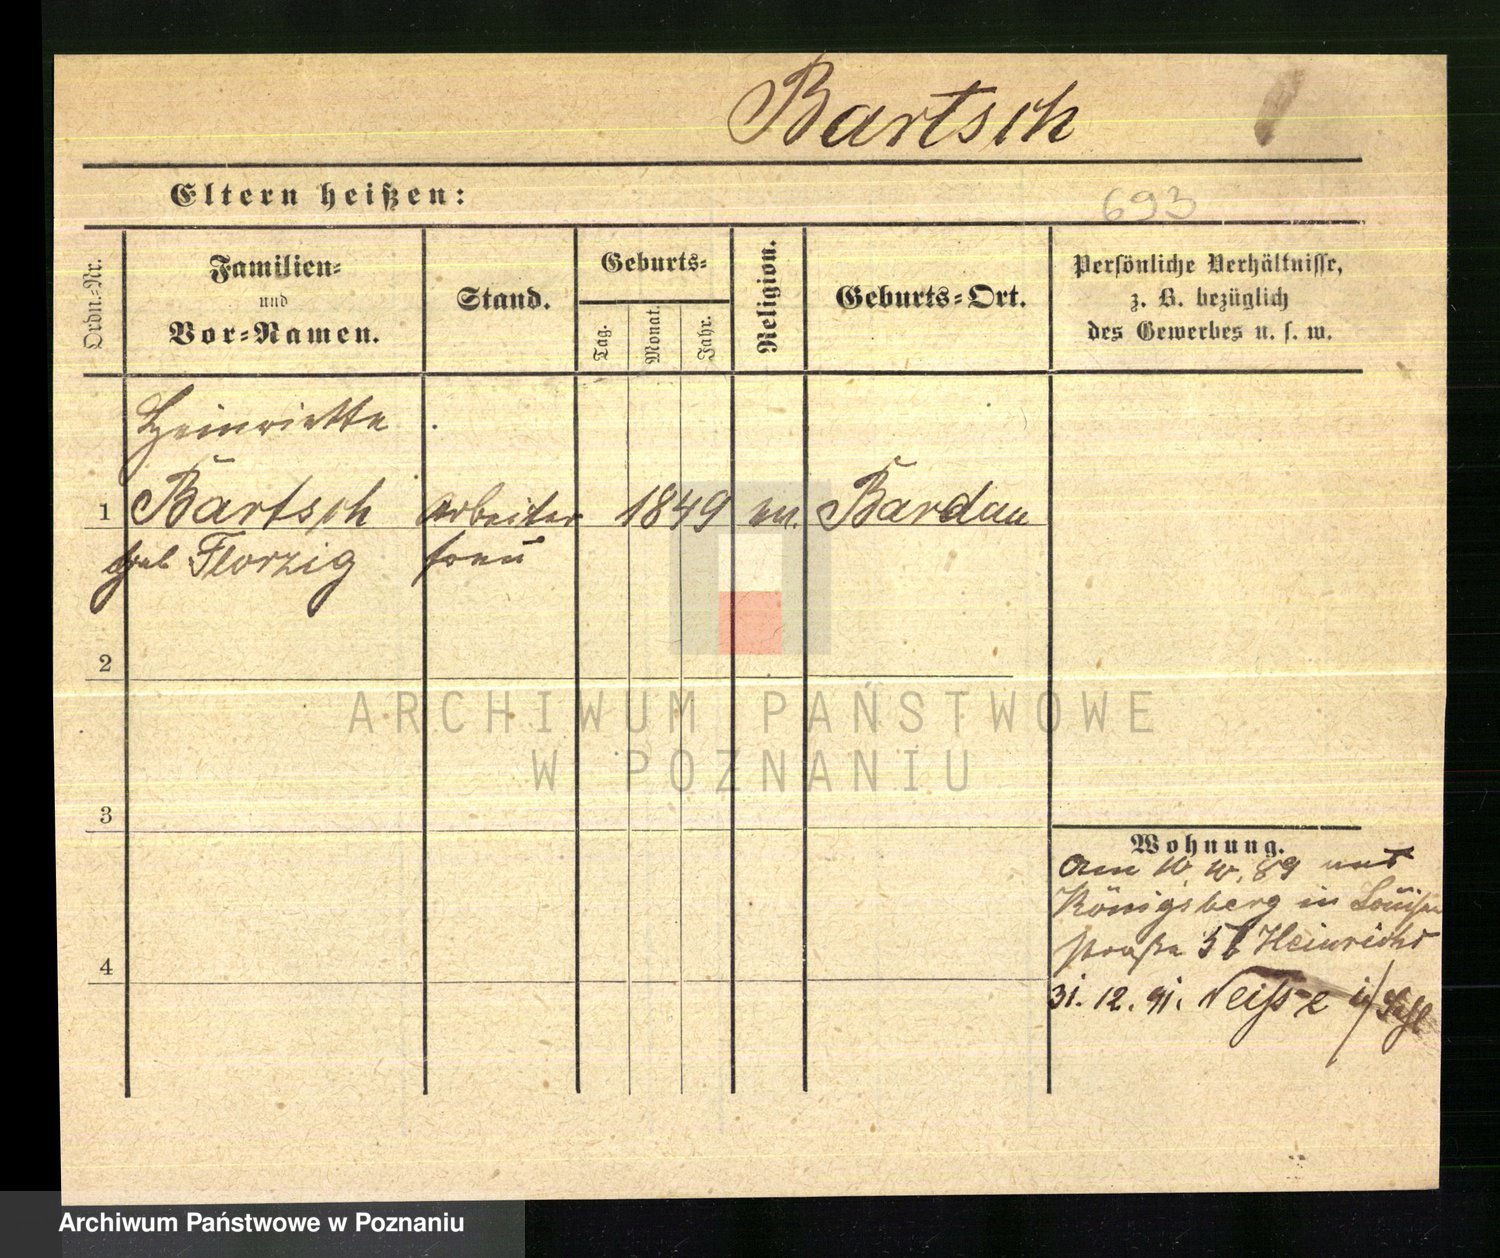 Bartsch
Eltern heißen:
693
Ordn.-Nr.
Familien-
und
Vor-Namen.
Stand.
Geburts-
Tag.
Monat.
Jahr.
Religion.
Geburts-Ort.
Persönliche Verhältnisse,
z. B. bezüglich
des Gewerbes u. s. w.
Heinriette
1 Bartsch Arbeiter 1849 ev. Bardau
geb Florzig frau
2
ARCHIWUM PAŃSTWOWE
W POZNANIU
3
Wohnung.
Am 89
Königsberg in Louisen
straße Heinrichs
4
31. 12. 91. Neisse
Archiwum Państwowe w Poznaniu